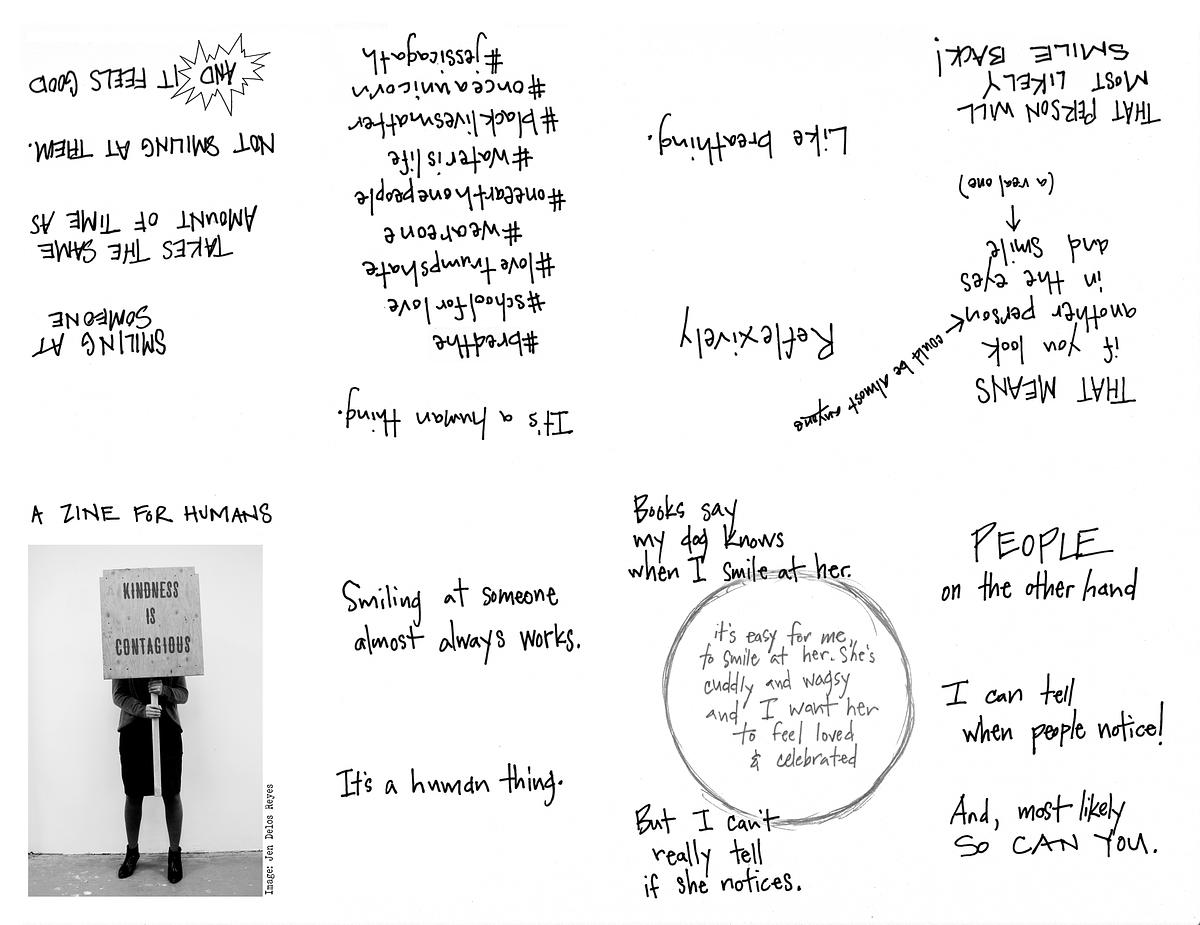 A ZINE FOR HUMANS
KINDNESS
IS
CONTAGIOUS
Image: Jen Delos Reyes
Smiling at someone
almost always works.
It's a human thing.
Books say
my dog knows
when I smile at her.
it's easy for me
to smile at her. She's
cuddly and wagsy
and I want her
to feel loved
& celebrated
But I can't
really tell
if she notices.
PEOPLE
on the other hand
I can tell
when people notice!
And, most likely
SO CAN YOU.
THAT MEANS
if you look
another person
could be almost anyone
in the eyes
and smile
(a real one)
THAT PERSON WILL
MOST LIKELY
SMILE BACK!
Reflexively
Like breathing.
It's a human thing.
#breathe
#schoolforlove
#lovetrumpshate
#weareone
#onearthonepeople
#waterislife
#blacklivesmatter
#onceaunicorn
#jessicagath
SMILING AT
SOMEONE
TAKES THE SAME
AMOUNT OF TIME AS
NOT SMILING AT THEM.
AND IT FEELS GOOD